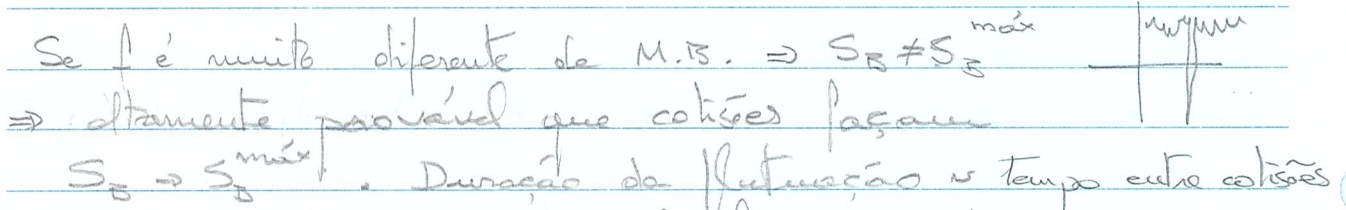 Se f é muito diferente de M.B. ⇒ S_B ≠ S_B^máx
⇒ altamente provável que colisões façam
S_B → S_B^máx. Duração da flutuação ~ tempo entre colisões